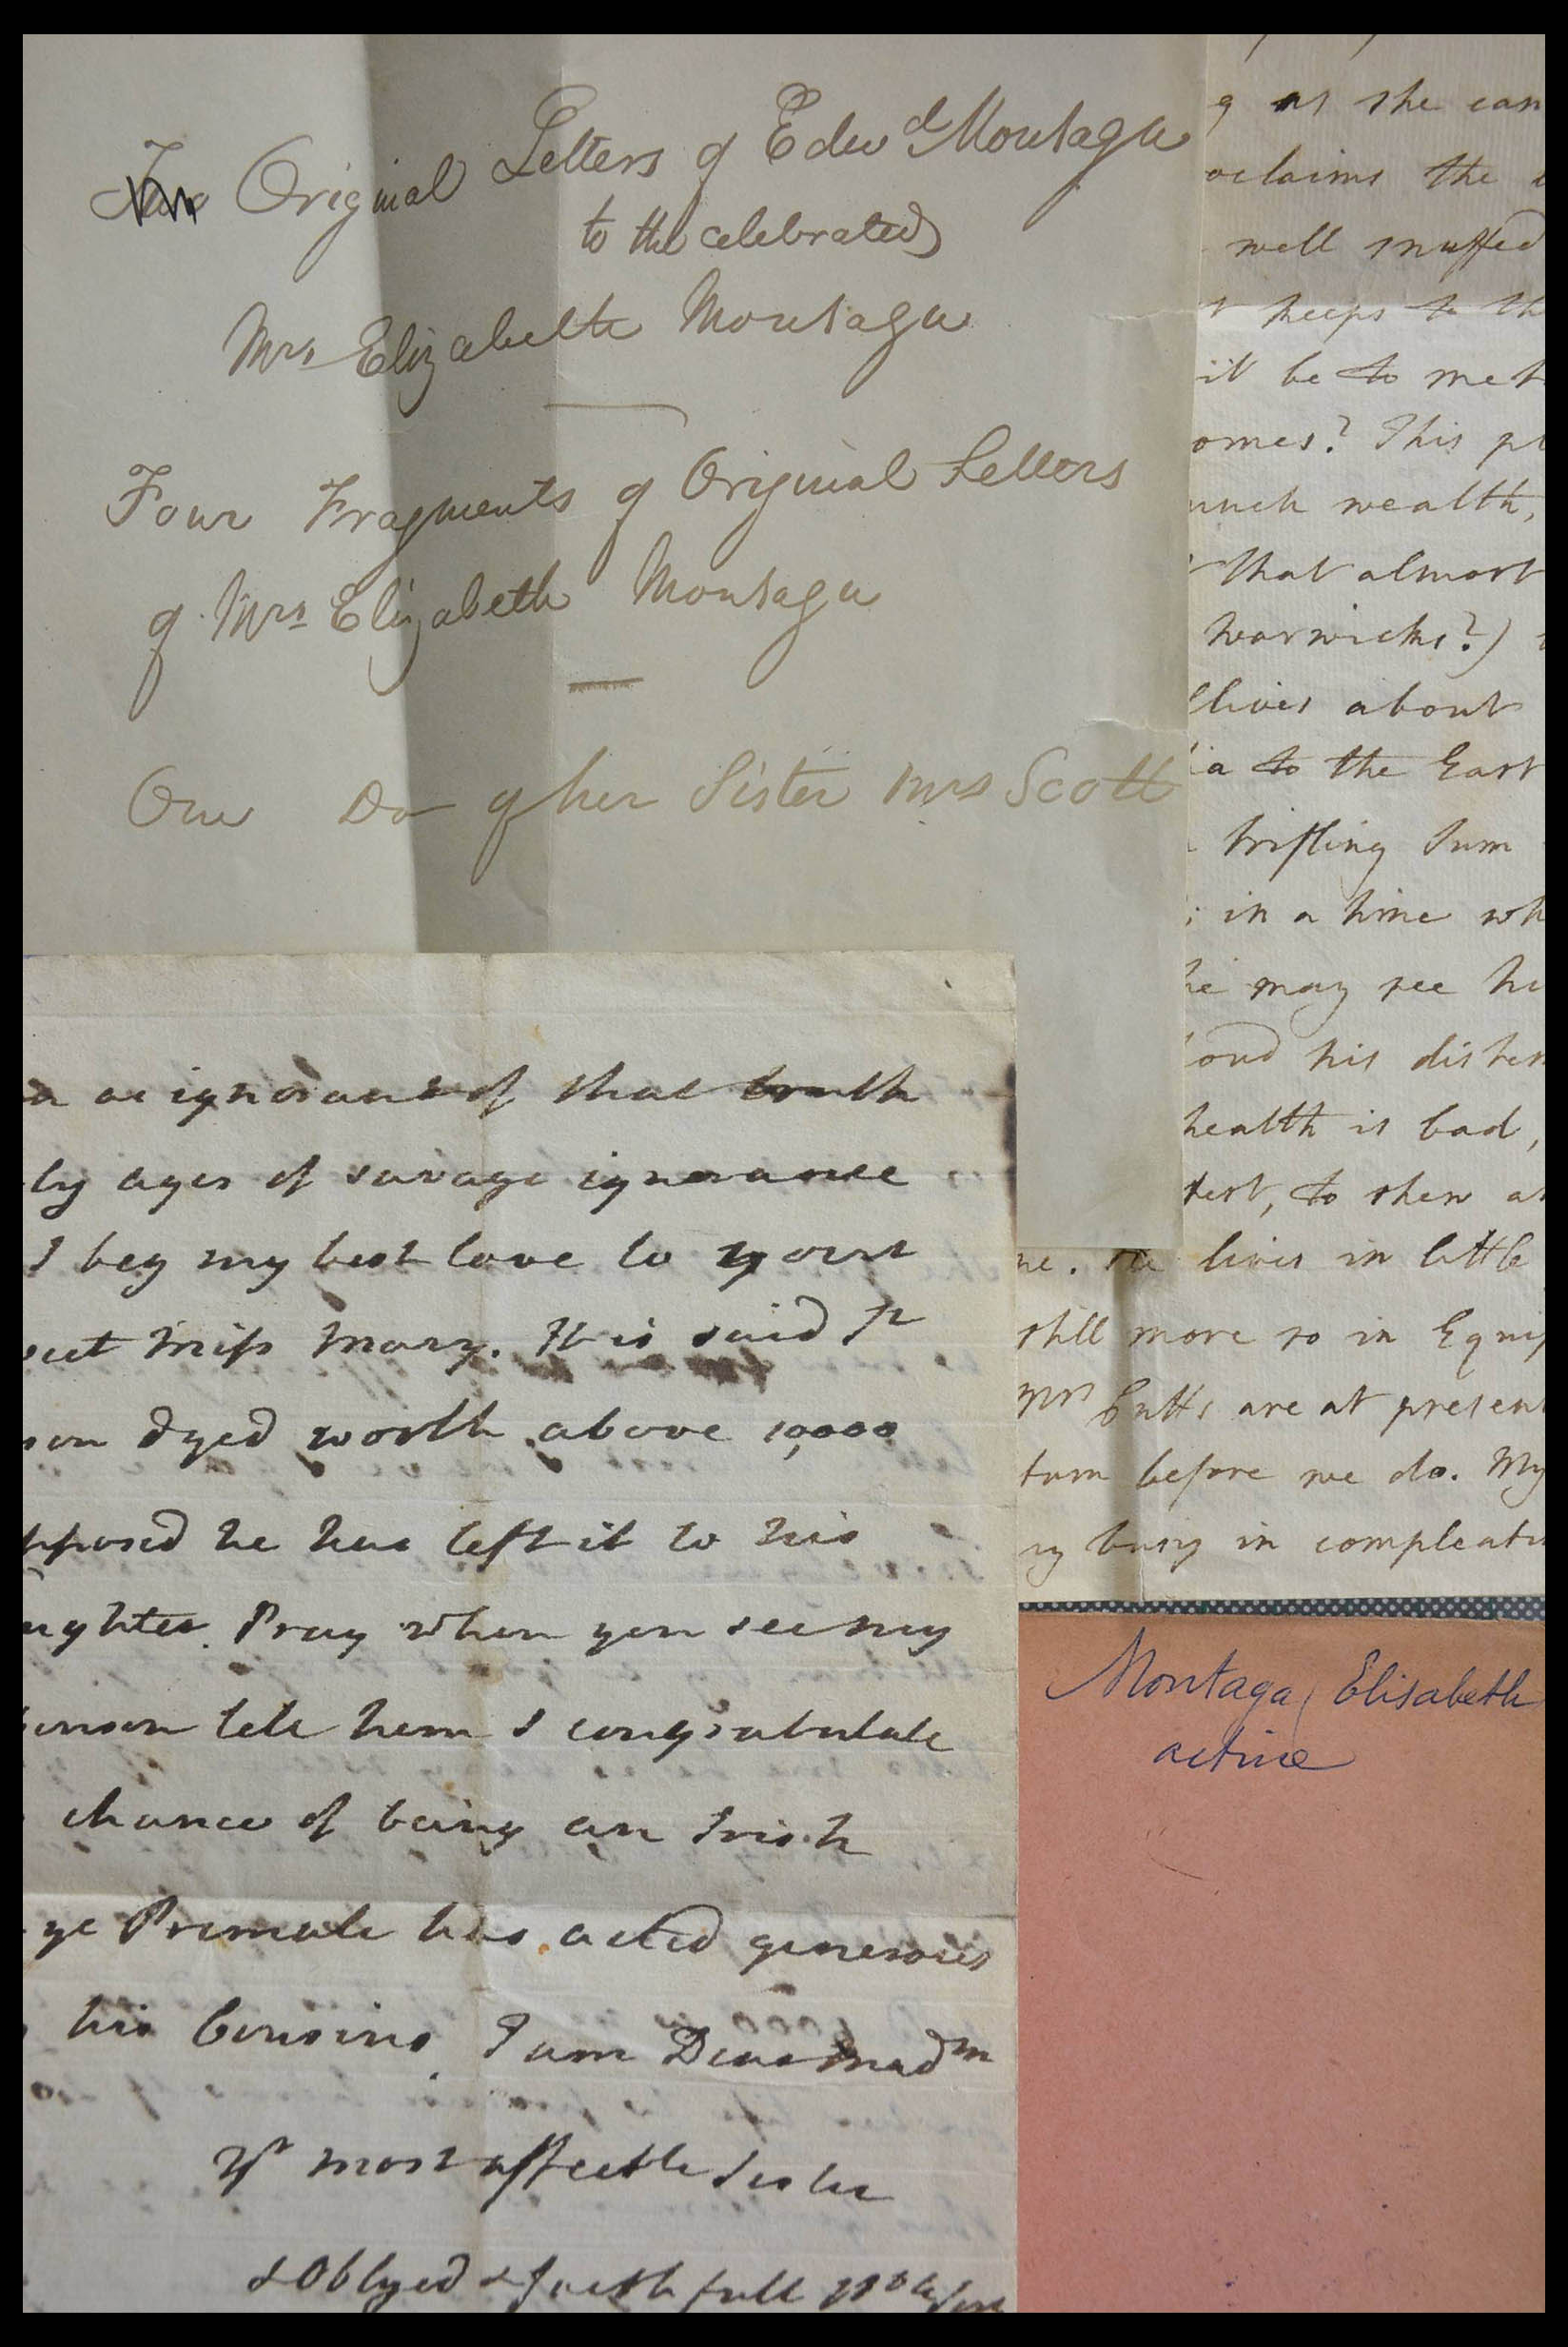 Original Letters of Edwd Montagu
to the celebrated
Mrs Elizabeth Montagu
Four Fragments of Original Letters
of Mrs Elizabeth Montagu
One Do of her Sister Mrs Scott
as she can
oclaims the
well snuffed
keeps to th
it be to met
omes? This pl
much wealth,
that almost
Warwicks?)
lives about
ia to the East
trifling Sum
in a time wh
he may see hi
his disten
health is bad,
test, to shew at
ne. He lives in little
still more so in Equip
Mrs Cutts are at present
turn before we do. My
ry busy in compleatin
a as ignorant of that truth
by ages of savage ignorance
I beg my best love to your
eet Miss Mary. It is said Sr
son dyed worth above 10,000
pposed he has left it to his
ughter. Pray when you see my
inson tell him I congratulate
chance of being an Irish
ye Primate has acted generous
his Cousins. I am Dear Madm
yr most affectte Sister
& Oblyed & faithfull
Montaga, Elisabeth
actrice